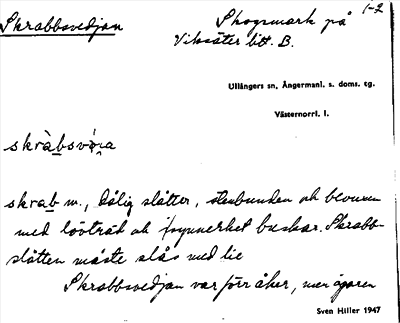 Skrabbsvedjan
Skogsmark på 1-2
Viksäter litt. B.
Ullångers sn, Ångermanl. s. doms. tg.
Västernorrl. l.
skràbsvó̩a
skrab m., dålig slåtter, stenbunden och bevuxen
med lövträd och buskar. Skrabb-
slåtten måste slås med lie
Skrabbsvedjan var förr åker, men ägaren
Sven Hiller 1947